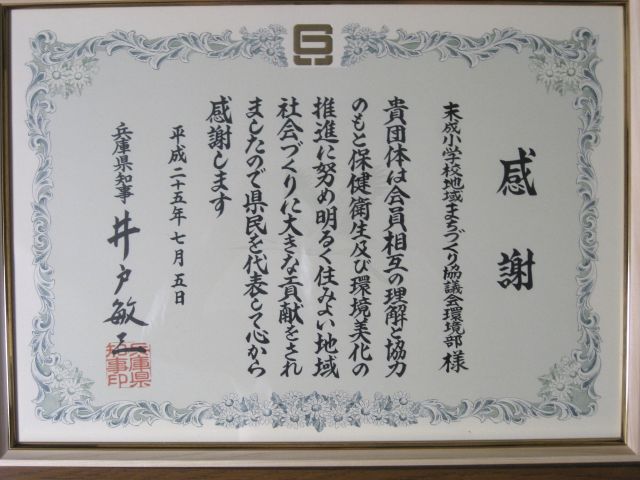 感謝
末成小学校地域まちづくり協議会環境部 様
貴団体は会員相互の理解と協力
のもと保健衛生及び環境美化の
推進に努め明るく住みよい地域
社会づくりに大きな貢献をされ
ましたので県民を代表して心から
感謝します
平成二十五年七月五日
兵庫県知事 井戸敏三
兵庫県知事印